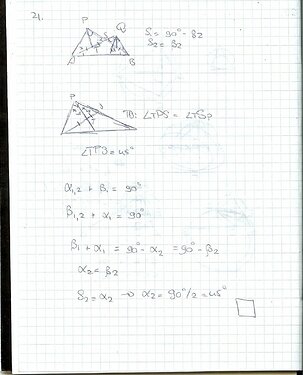 21.
P
Q
δ₁ = 90° - β₂
δ₂ = β₂
A
B
P
∠TPS = ∠TSP
= 45°
α₁,₂ + β₁ = 90°
β₁,₂ + α₁ = 90°
β₁ + α₁ = 90° - α₂ = 90° - β₂
α₂ = β₂
δ₂ = α₂ → α₂ = 90°/2 = 45°